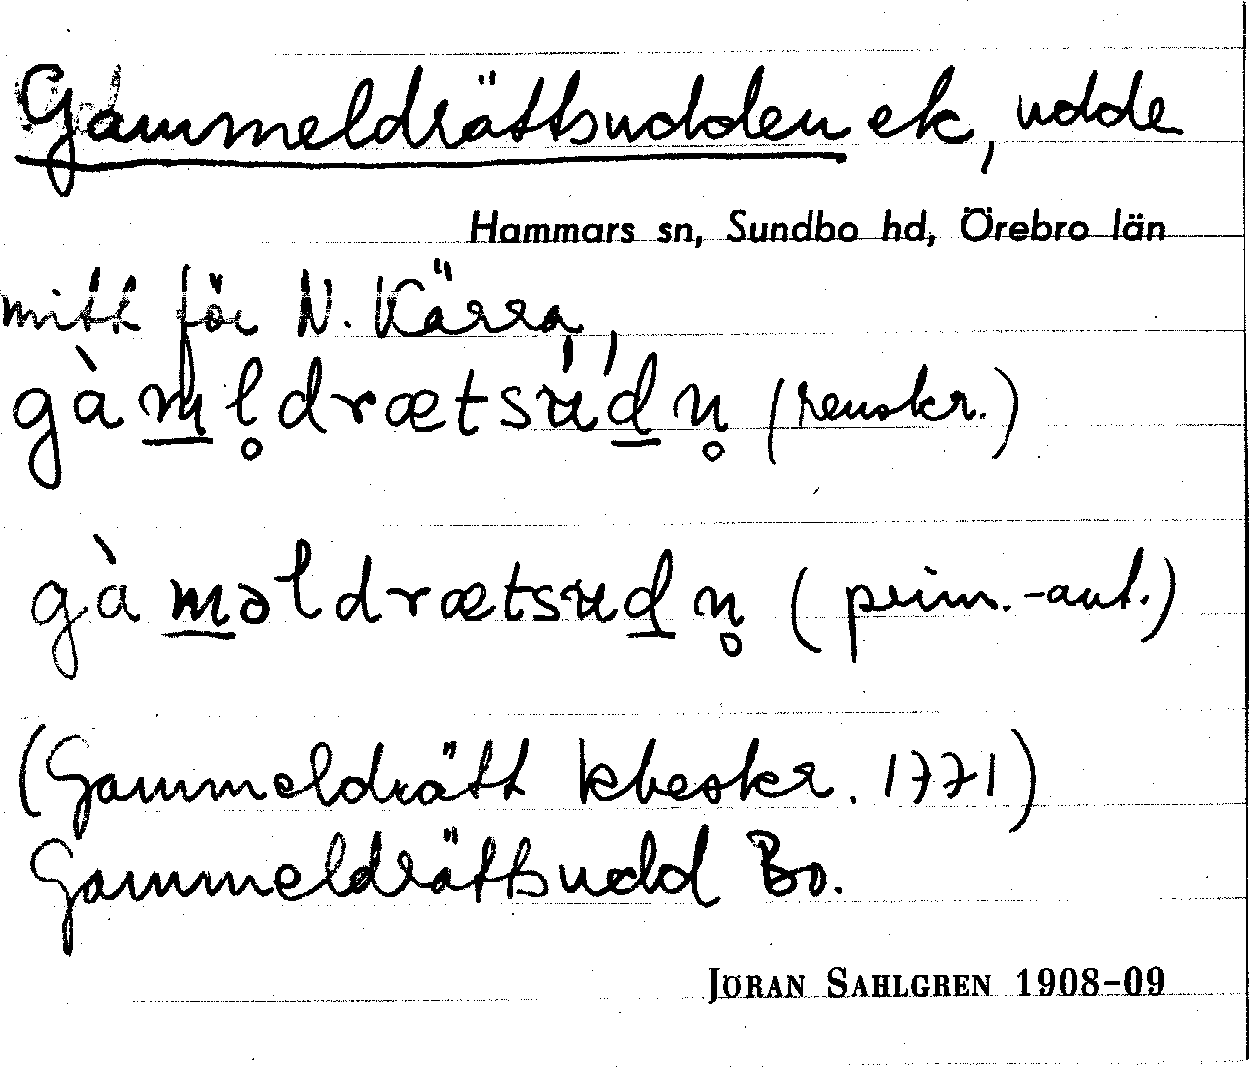 Gammeldrättsudden ek, udde
Hammars sn, Sundbo hd, Örebro län
mitt för N. Kärra,
gàm̲l̥drætsúd̲n̥ (renskr.)
gàm̲əldrætsud̲n̥ (prim.-ant.)
(Gammeldrätt kbeskr. 1771)
Gammeldrättsudd Bo.
JÖRAN SAHLGREN 1908-09